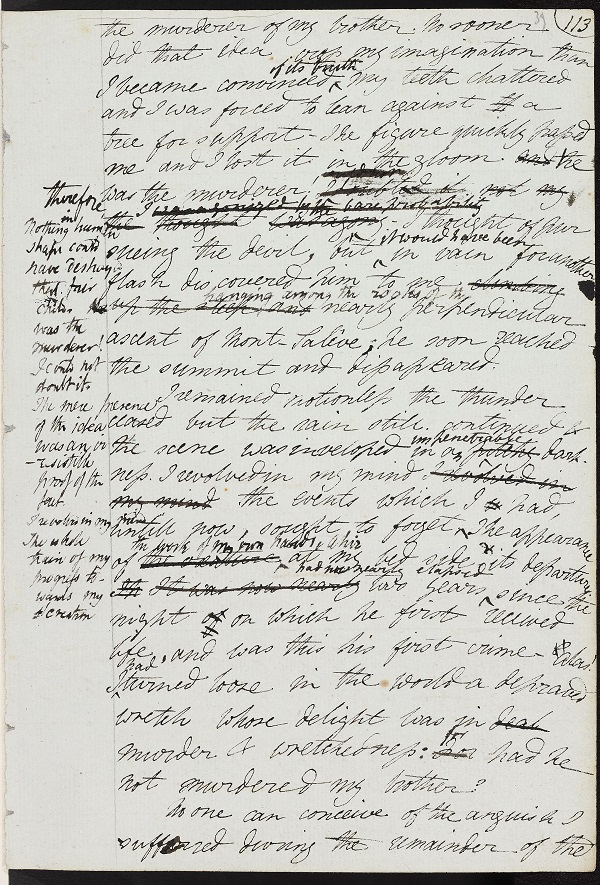 39
113
the murderer of my brother. No sooner
did that idea cross my imagination than
of its truth
I became convinced my teeth chattered
and I was forced to lean against a
tree for support – The figure quickly passed
me and I lost it in the gloom. and He
was the murderer! not my
the bare probability
the thought I thought of pur
sueing the devil, but it would have been in vain for another
flash discovered him to me climbing
hanging among the rocks of the
up the steep, and nearly perpendicular
ascent of Mont-Salêve; he soon reached
the summit and disappeared.
I remained motionless the thunder
ceased but the rain still continued &
impenetrable
the scene was inveloped in a dark-
ness. I revolved in my mind I
my mind the events which I had
untill now sought to forget, The appearance
the work of my own hands, alive
of the creature at my bed side its departure
had now nearly elapsed
It was now nearly two years since the
night of on which he first received
life, and was this his first crime – Alas!
had
I turned loose in the world a depraved
wretch whose delight was in deal
murder & wretchedness: for had he
not murdered my brother?
No one can conceive of the anguish I
suffered during the remainder of the
therefore
Nothing in human
shape could
have destroyed
that fair
child. He
was the
murderer!
I could not
doubt it.
The mere presence
of the idea
was an irr
-esistible
proof of the
fact.
I revolved in my mind
The whole
train of my
progress to-
wards my
creation